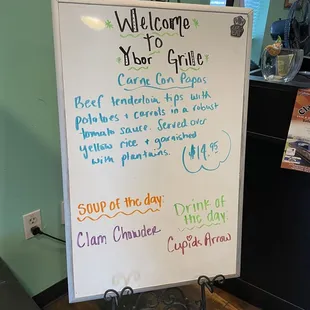 Welcome
to
Ybor Grille
Carne Con Papas
Beef tenderloin tips with
potatoes + carrots in a robust
tomato sauce. Served over
yellow rice + garnished
with plantains.
$14.95
Soup of the day:
Clam Chowder
Drink of
the day:
Cupids Arrow